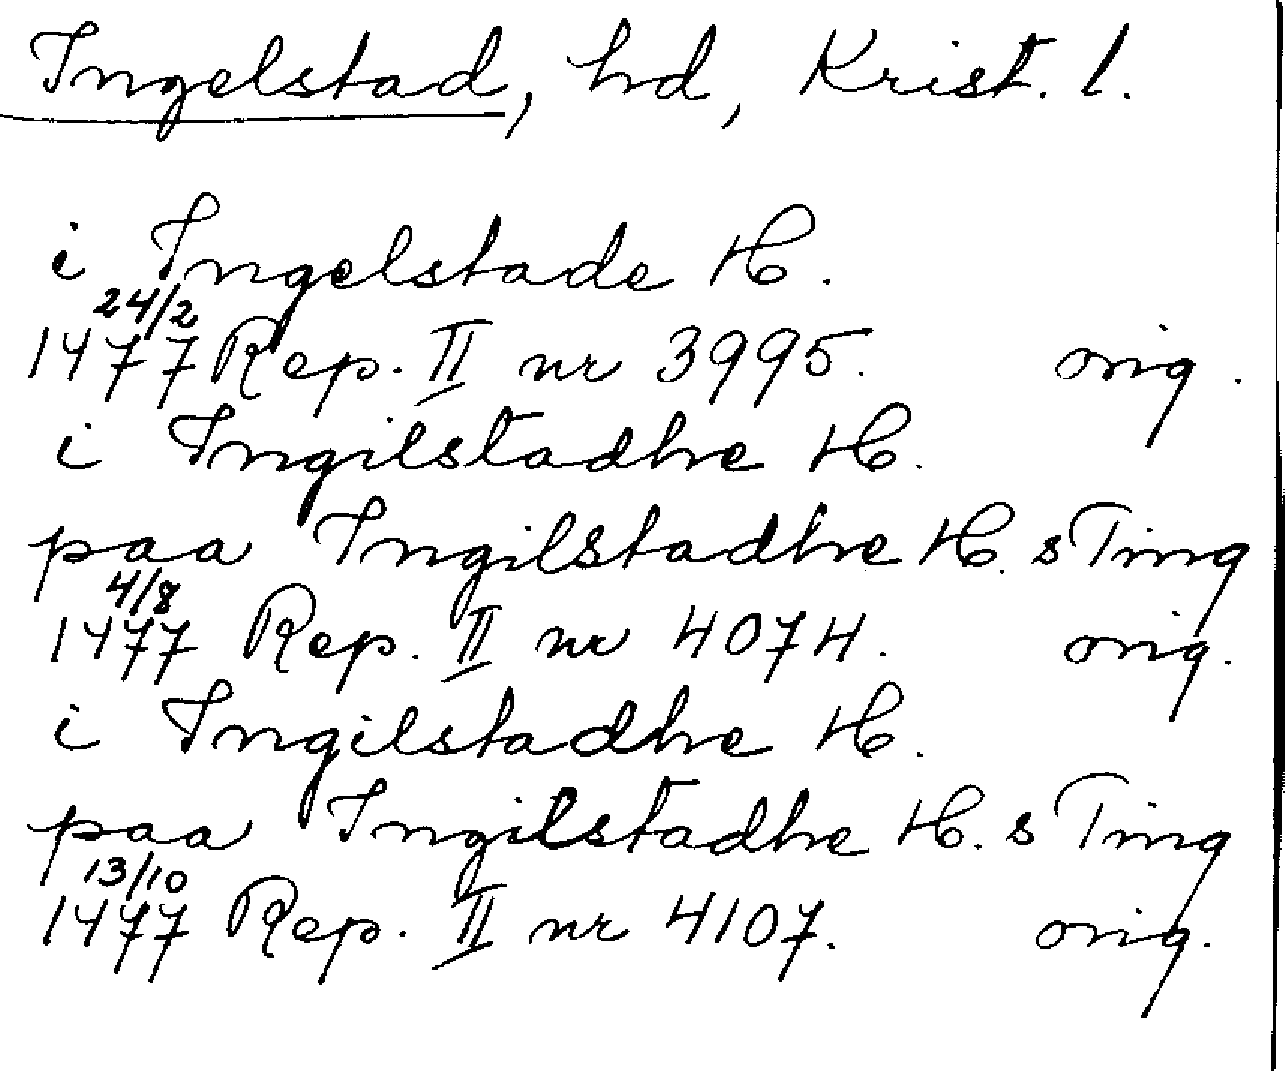 Ingelstad, hd, Krist. l.
i Ingelstade H.
24/2
1477 Rep. II nr 3995. orig.
i Ingilstadhe H.
paa Ingilstadhe H. s Ting
4/8
1477 Rep. II nr 4074. orig.
i Ingilstadhe H.
paa Ingilstadhe H. s Ting
13/10
1477 Rep. II nr 4107. orig.